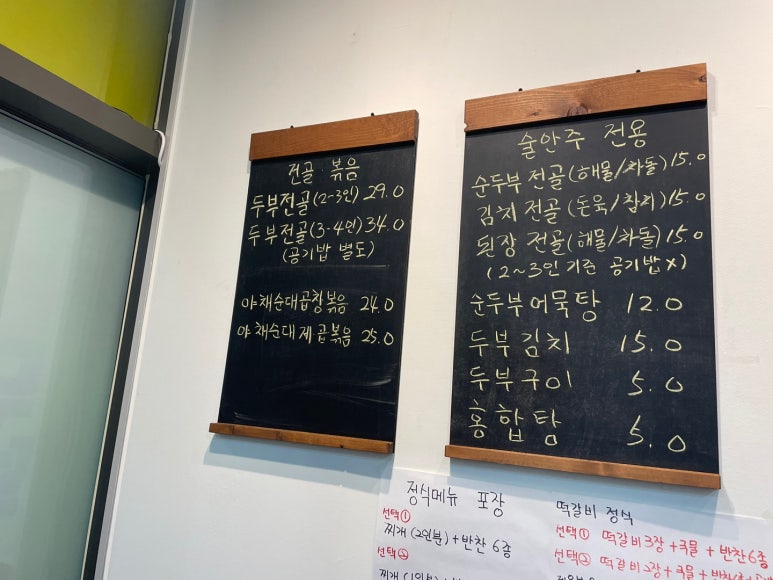 전골 볶음
두부전골(2~3인) 29.0
두부전골(3-4인) 34.0
(공기밥 별도)
야채순대곱창볶음 24.0
야채순대제곱볶음 25.0
술안주 전용
순두부 전골(해물/차돌) 15.0
김치 전골 (돈육/참치) 15.0
된장 전골(해물/차돌) 15.0
(2~3인 기준 공기밥X)
순두부어묵탕 12.0
두부김치 15.0
두부구이 5.0
홍합탕 5.0
정식메뉴 포장
선택①
찌개 (2인분) + 반찬 6종
선택②
떡갈비 정식
선택① 떡갈비3장 + 국물 + 반찬6종
선택② 떡갈비2장 + 국물 +